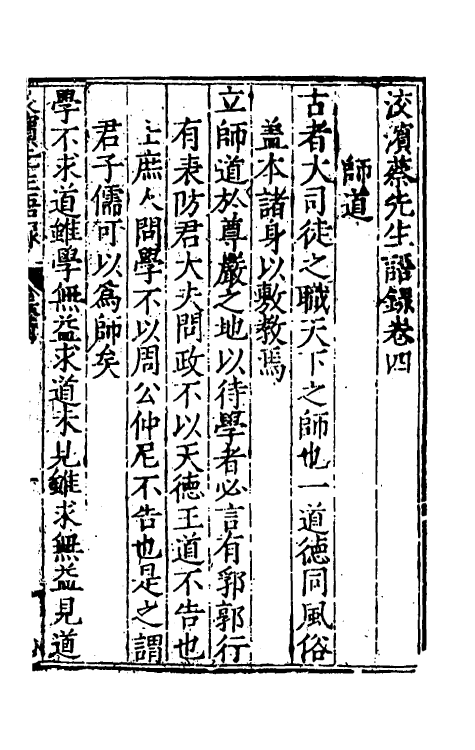 洨濱蔡先生語録卷四
師道
古者大司徒之職天下之師也一道徳同風俗
盖本諸身以敷教焉
立師道於尊嚴之地以待學者必言有郛郭行
有表防君大夫問政不以天徳王道不告也
士庶人問學不以周公仲尼不告也是之謂
君子儒可以爲師矣
學不求道雖學無益求道未見雖求無益見道